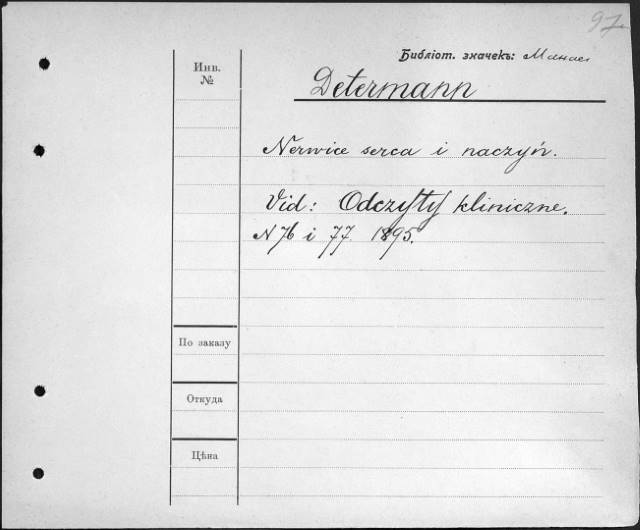 97.
Библіот. значекъ:
Инв.
№
Determann
Nerwice serca i naczyń.
Vid: Odczyty kliniczne.
N 76 i 77. 1895.
По заказу
Откуда
Цѣна